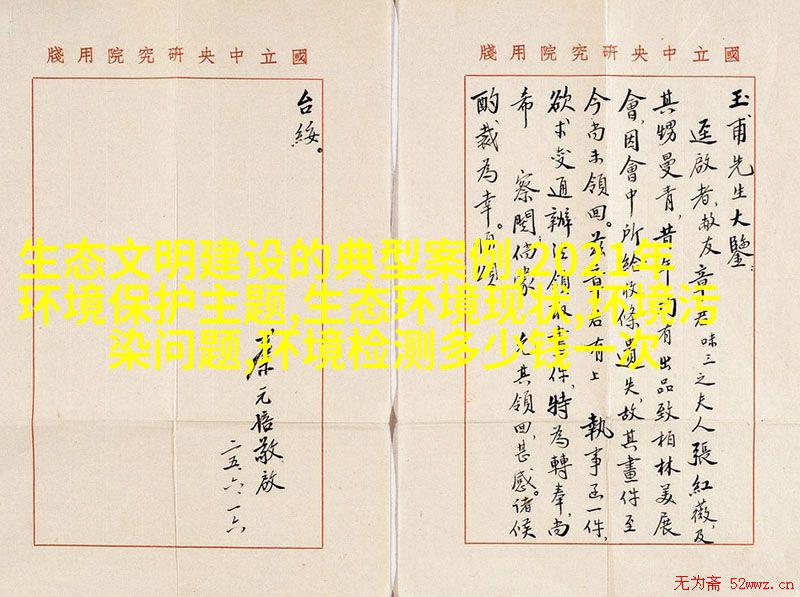 國立中央研究院用牋
玉甫先生大鑒:
逕啟者,敝友章君味三之夫人張紅薇,及
其甥曼青,昔年均有出品致柏林美展
會,因會中所給收條遺失,故其畫件至
今尚未領回。茲章君有上 執事函一件,
欲求變通辦法,領取畫件,特為轉奉,尚
希 察閱,倘蒙 允其領回,甚感。諸候
酌裁為幸。順頌
國立中央研究院用牋
台綏。
蔡元培敬啟
二五、六、一六
生态文明建设的典型案例,2021年
环境保护主题,生态环境现状,环境污
染问题,环境检测多少钱一次
无为斋 52wwz.cn